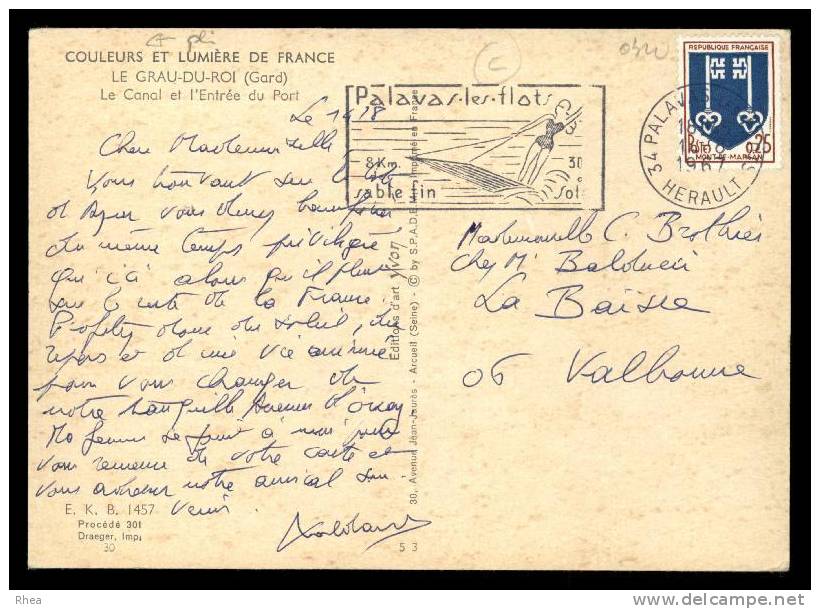 COULEURS ET LUMIÈRE DE FRANCE
LE GRAU-DU-ROI (Gard)
Le Canal et l'Entrée du Port
Palavas-les-flots
8 Km.
30
sable fin
Sol
REPUBLIQUE FRANÇAISE
0,25
MONT-DE-MARSAN
34 PALAVAS
18
1967
HERAULT
Le 14 18
Chere Mademoiselle
Vous trouvant sur la Côte
d'Azur vous devez
du même temps privilégié
qui ici alors qu'il pleut
sur le reste de la France.
Profitez donc du soleil, du
repos et de
pour vous changer de
notre tranquille Avenue d'
Ma femme se joint à moi pour
vous remercier de votre carte et
vous adresser notre amical sou-
venir.
Mademoiselle C.
Chez Mr
La
06 Valbonne
Editions d'art Yvon
30, Avenue Jean-Jaurès - Arcueil (Seine) - © by S.P.A.D.E.M. Imprimé en France
E. K. B. 1457
Procédé 301
Draeger, Imp.
30
5 3
Rhea
www.delcampe.net